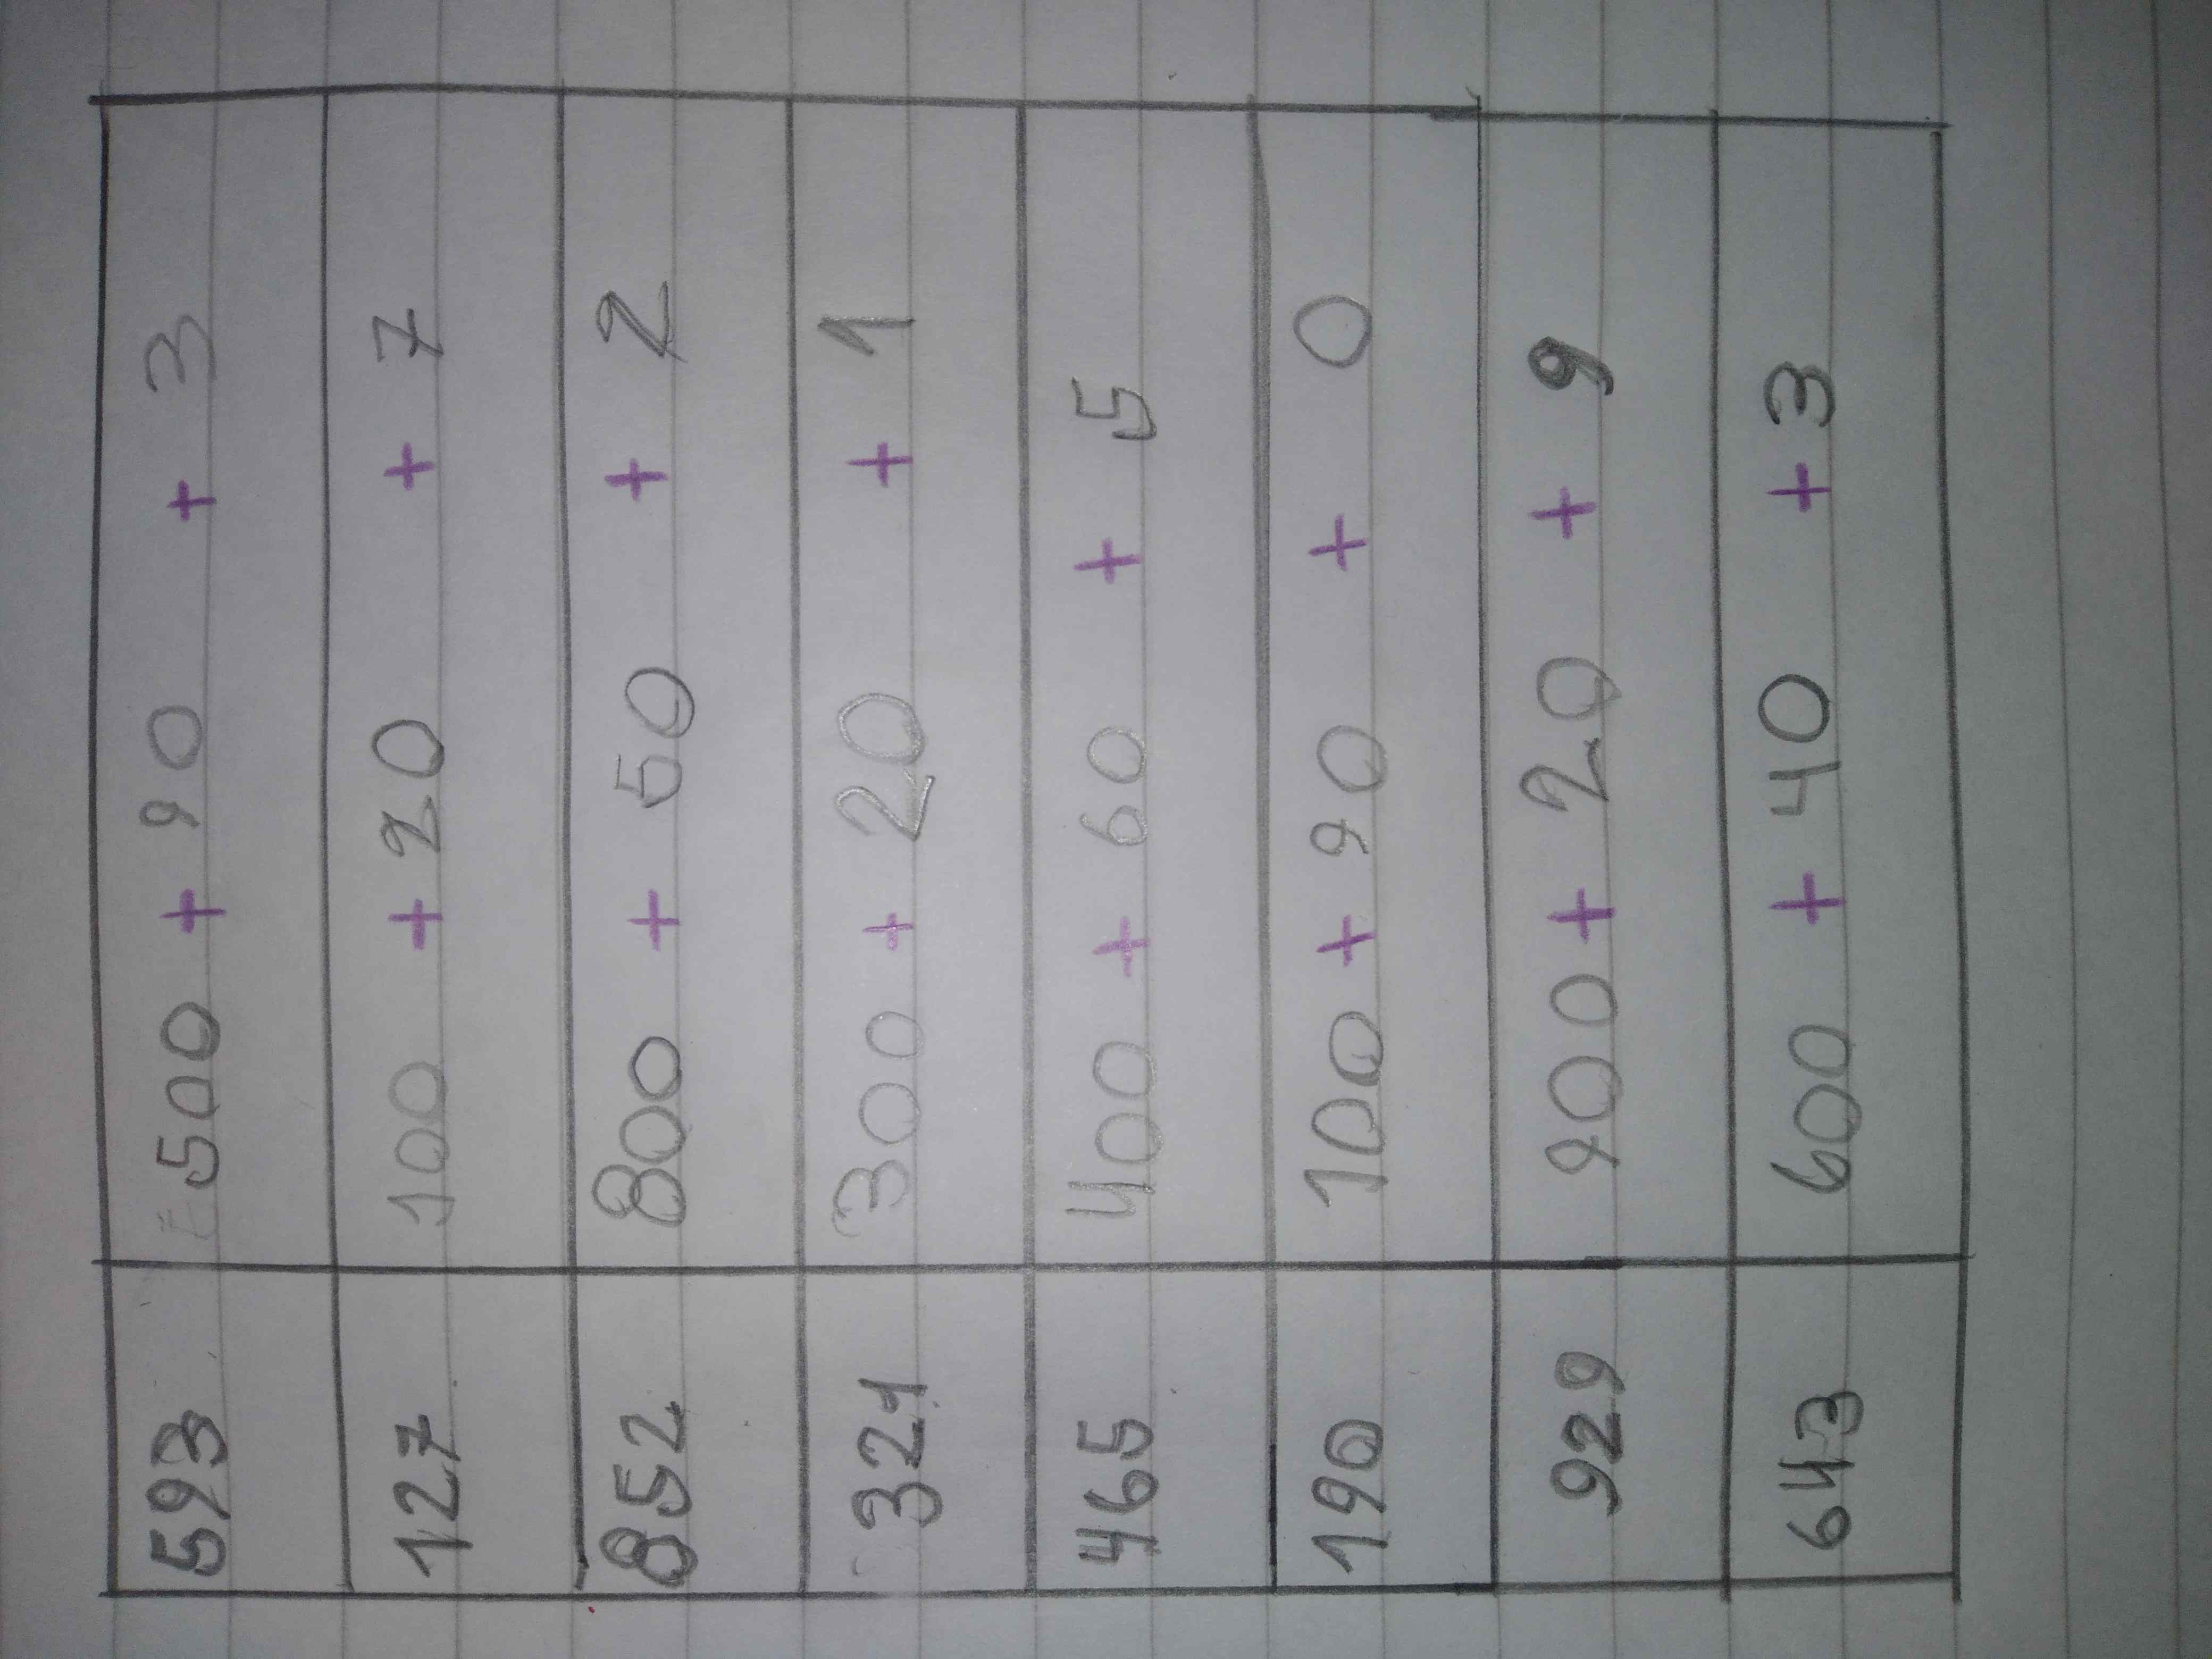 593 500 + 90 + 3
127 100 + 20 + 7
852 800 + 50 + 2
321 300 + 20 + 1
465 400 + 60 + 5
190 100 + 90 + 0
929 900 + 20 + 9
643 600 + 40 + 3